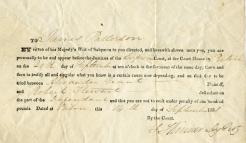 To James Patterson
BY virtue of his Majesty's Writ of Subpoena to you directed, and herewith shewn unto you, you are
personally to be and appear before the Justices of the Court, at the Court House in
on the day of September at ten o'clock in the forenoon of the same day, there and
then to testify all and singular what you know in a certain cause now depending, and on that day to be
tried between Alexander Grant Plaintiff,
and John Stewart defendant on
the part of the Defendant and this you are not to omit under penalty of one hundred
pounds. Dated at this day of September
By the Court.